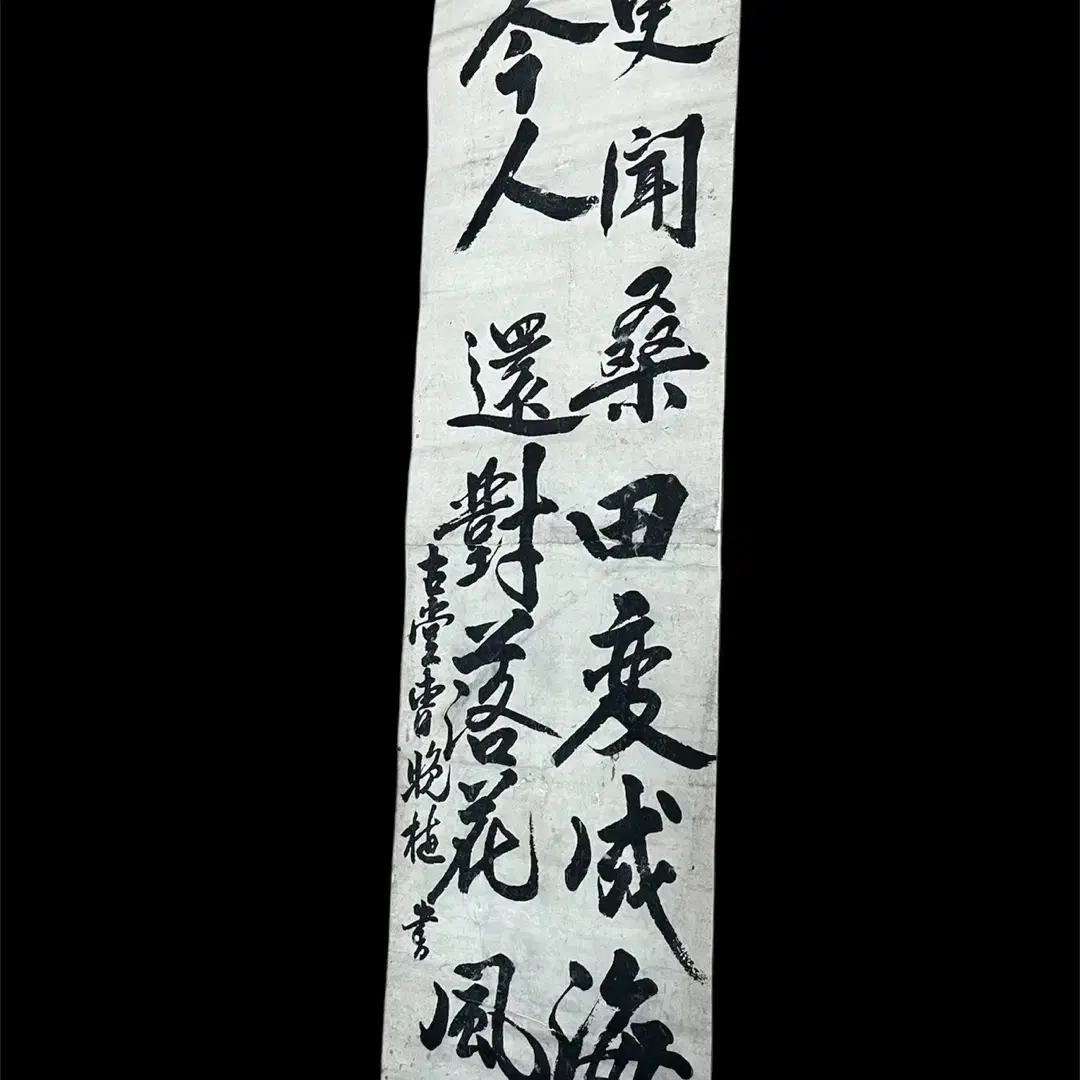 更聞桑田變成海
今人還對落花風
古堂曹晚植書